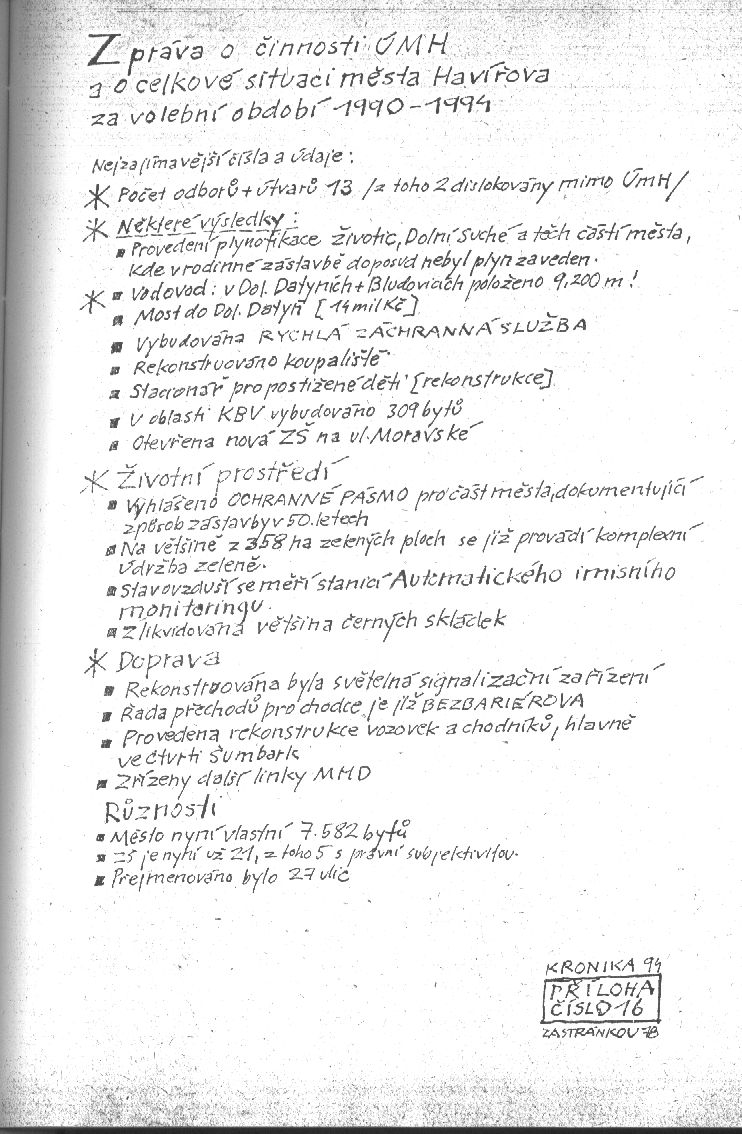 Zpráva o činnosti ÚMH
a o celkové situaci města Havířova
za volební období 1990-1994
Nejzajímavější čísla a údaje:
* Počet odborů + útvarů 13 /z toho 2 dislokovány mimo ÚMH/
* Některé výsledky:
▪ Provedení plynofikace Životic, Dolní Suché a těch částí města,
kde v rodinné zástavbě doposud nebyl plyn zaveden.
* ▪ Vodovod: v Dol. Datyních + Bludovicích položeno 9,200 m!
▪ Most do Dol. Datyň [14 mil Kč]
▪ Vybudována RYCHLÁ ZÁCHRANNÁ SLUŽBA
▪ Rekonstruováno koupaliště
▪ Stacionář pro postižené děti [rekonstrukce]
▪ V oblasti KBV vybudováno 309 bytů
▪ Otevřena nová ZŠ na ul. Moravské
* Životní prostředí
▪ Vyhlášeno OCHRANNÉ PÁSMO pro část města, dokumentující
způsob zástavby v 50. letech
▪ Na většině z 358 ha zelených ploch se již provádí komplexní
údržba zeleně.
▪ Stav ovzduší se měří stanicí Automatického imisního
monitoringu.
▪ Zlikvidována většina černých skládek
* Doprava
▪ Rekonstruována byla světelná signalizační zařízení
▪ Řada přechodů pro chodce je již BEZBARIÉROVÁ
▪ Provedena rekonstrukce vozovek a chodníků, hlavně
ve čtvrti Šumbark
▪ Zřízeny další linky MHD
Různosti
▪ Město nyní vlastní 7.582 bytů
▪ ZŠ je nyní už 21, z toho 5 s právní subjektivitou.
▪ Přejmenováno bylo 27 ulic
KRONIKA 94
PŘÍLOHA
ČÍSLO 16
ZA STRÁNKOU 78